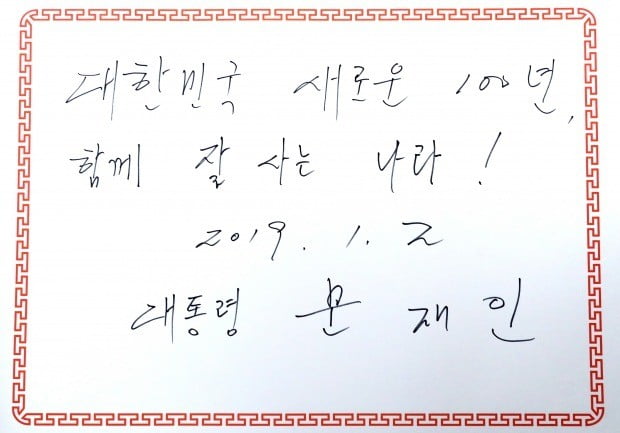 대한민국 새로운 100년,
함께 잘 사는 나라!
2019. 1. 2
대통령 문재인